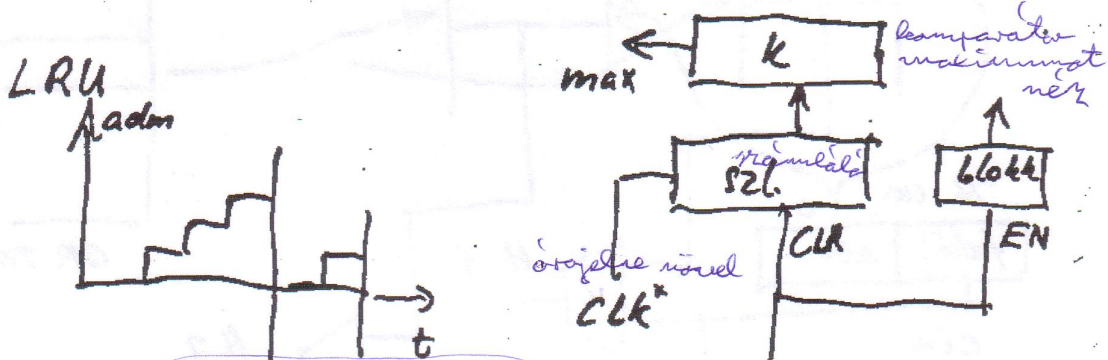 LRU
adm
t
max
K
komparátor
maximumot
néz
számláló
szl.
blokk
CLR
EN
órajelre növel
CLK*